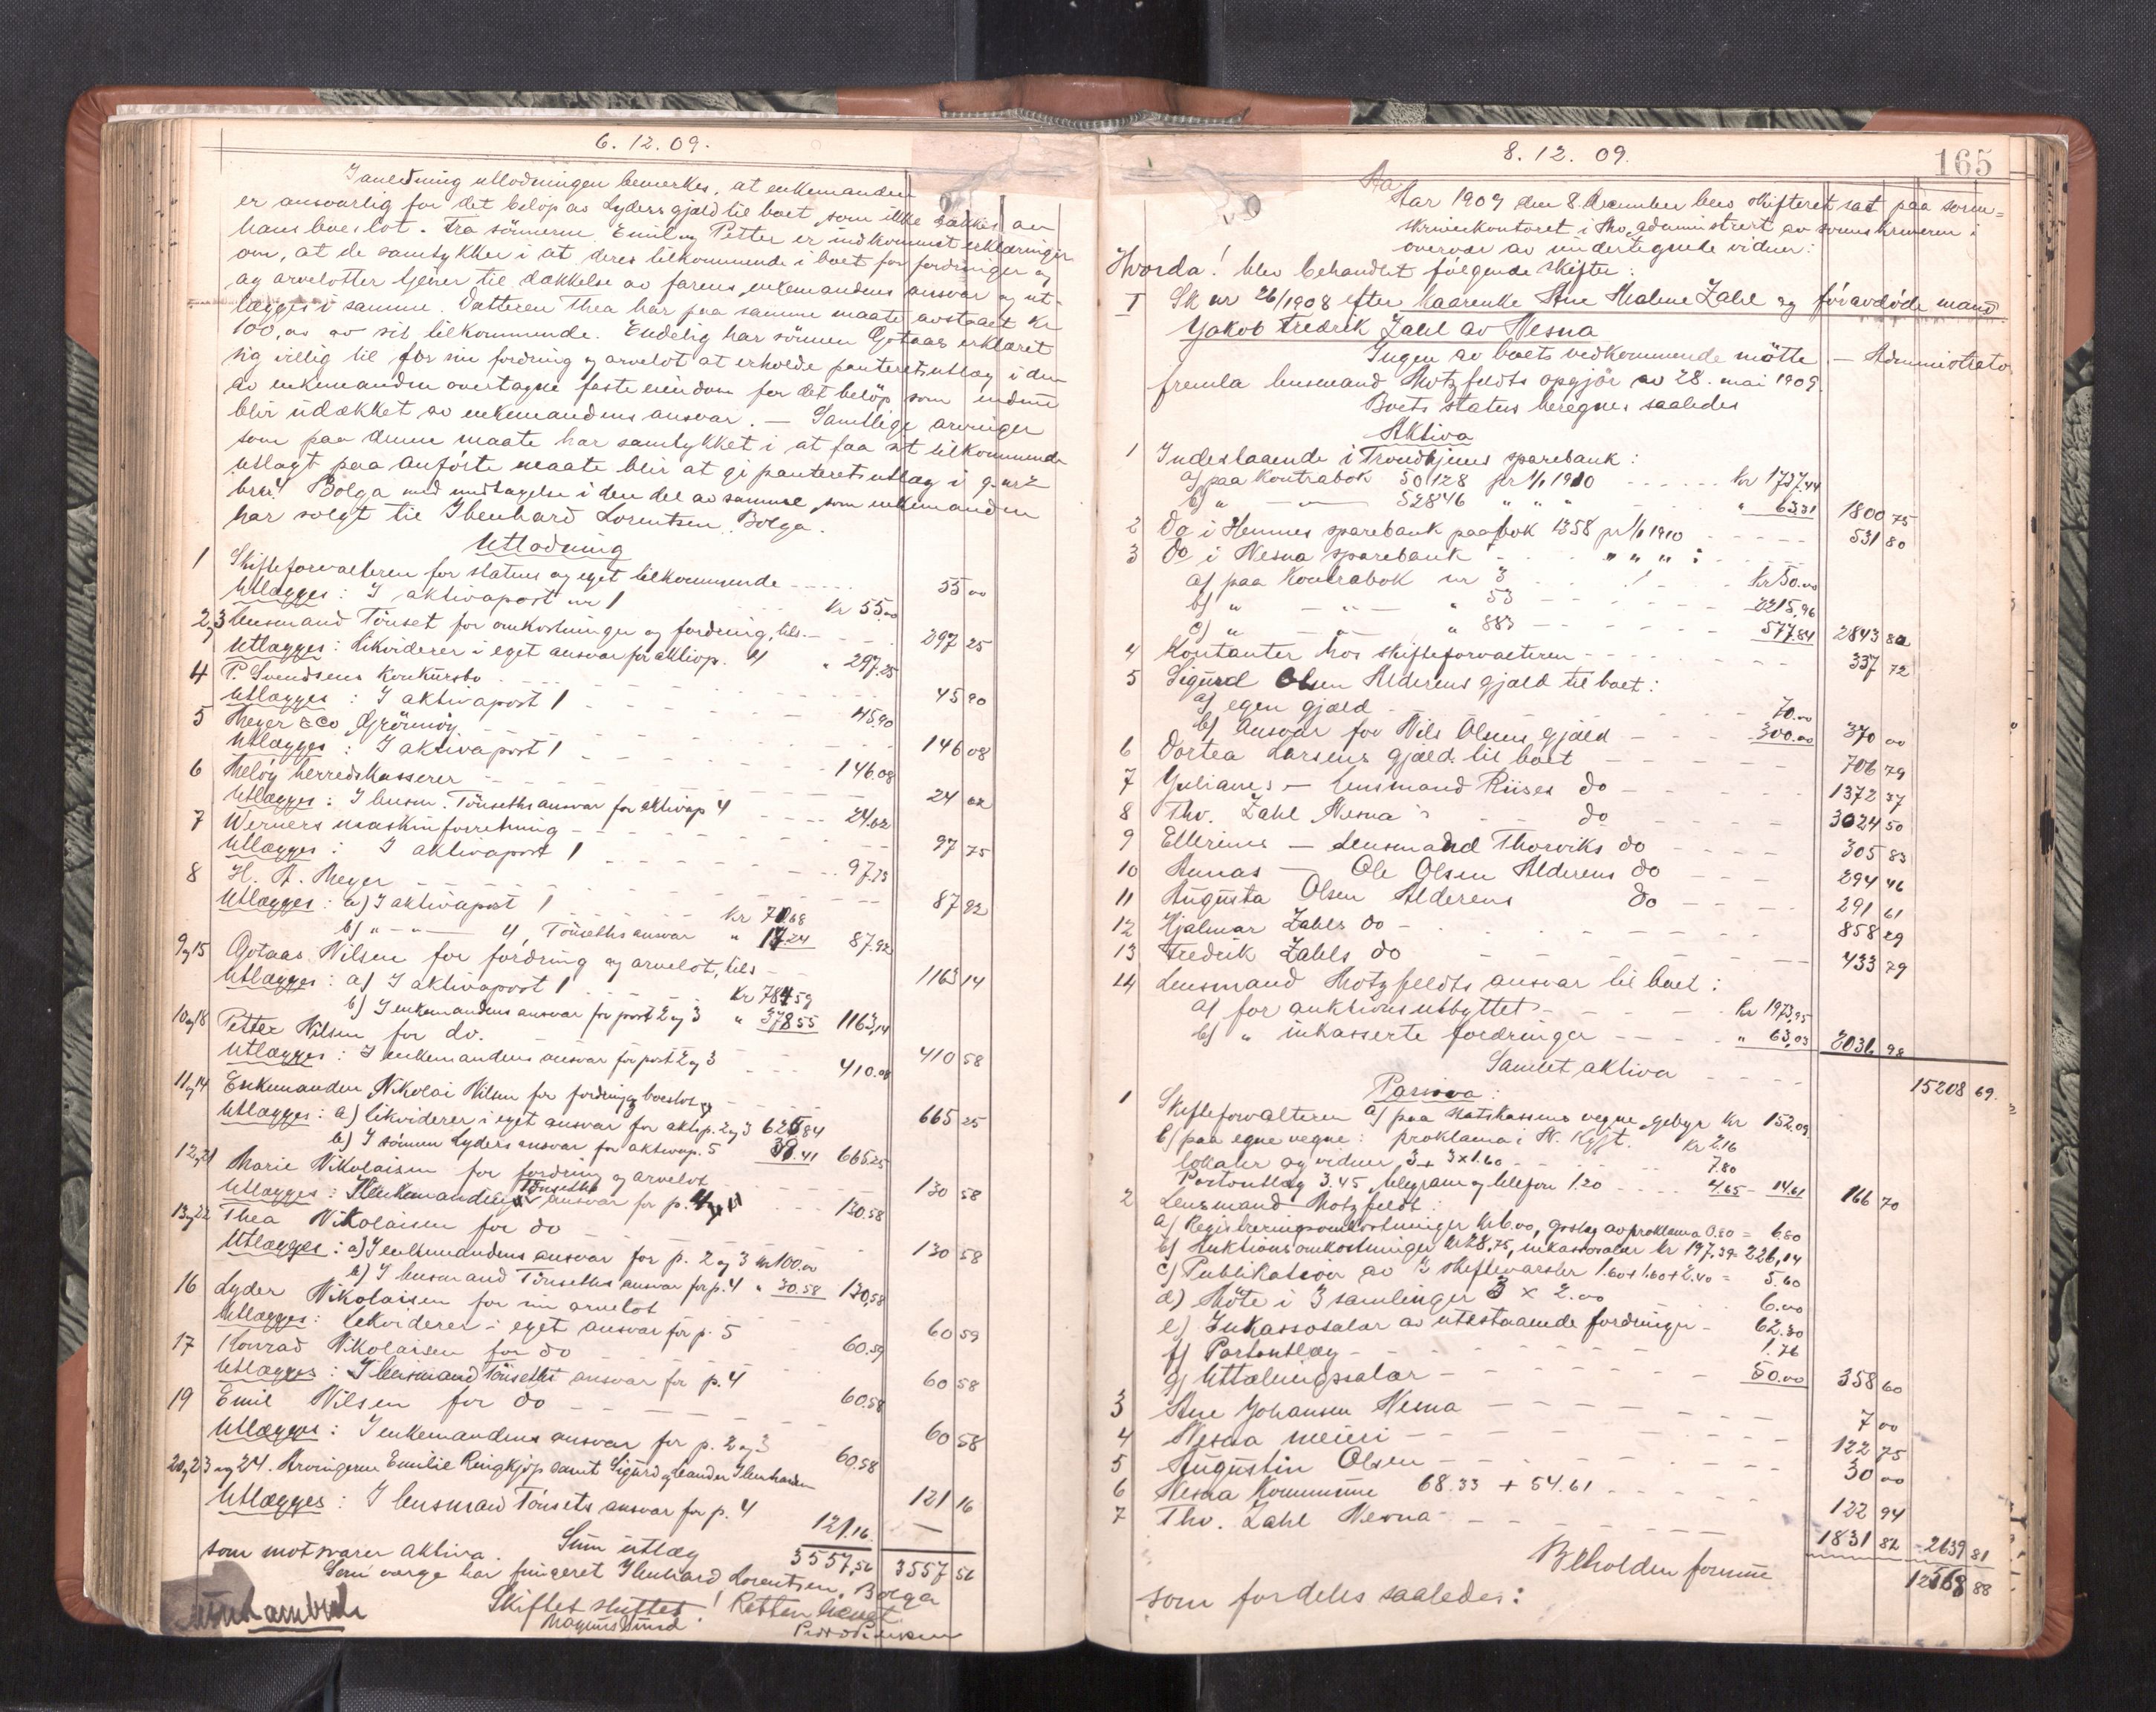 6.12.09.
I anledning utlodningen bemerkes, at enkemanden
er ansvarlig for det beløp av Lyders gjæld til boet, som ikke dækkes av
hans boeslot. Fra sönnerne Emil og Petter er indkommet erklæringer
om, at de samtykker i at deres tilkommende i boet for fordringer og
og arvelotter tjener til dækkelse av farens, enkemandens ansvar og ut-
lægges i samme. Datteren Thea har paa samme maate avstaaet Kr
100,00 av sit tilkommende. Endelig har sönnen Gotaas erklæret
sig villig til for sin fordring og arvelot at erholde panteretsutlæg i den
av enkemanden overtagne faste eiendom for det belöp som endnu
blir udækket av enkemandens ansvar. — Samtlige arvinger
som paa denne maate har samtykket i at faa sit tilkommende
utlagt paa anförte maate blir at gi panteretsutlæg i g.nr 2
br.nr 1 Bolga med undtagelse i den del av samme, som enkemanden
har solgt til Ibenhard Lorentsen, Bolga.
Utlodning
1 Skifteforvalteren for status og eget tilkommende 55 00
Utlægges: I aktivapost nr 1 Kr 55.00
2 og 3 Lensmand Tönset for omkostninger og fordring, tils. 297 25
Utlægges: Likviderer i eget ansvar for aktivp. 4 " 297.25
4 P. Svendsens Konkursbo 45 90
Utlægges: I aktivapost 1 45.90
5 Meyer & Co Grönnöy 146 08
Utlægges: I aktivapost 1 146.08
6 Melöy herredskasserer 24 02
Utlægges: I lensm. Tönseths ansvar for aktivap 4 24.02
7 Werners maskinforretning 97 75
Utlægges: I aktivapost 1 97.75
8 H. A. Meyer 87 92
Utlægges: a) I aktivapost 1 Kr 70.68
b) " — " — 4, Tönseths ansvar " 17.24 87.92
9 og 15 Gotaas Nilsen for fordring og arvelot, tils 1163 14
Utlægges: a) I aktivapost 1 Kr 784.59
b) I enkemandens ansvar for post 2 og 3 " 378.55 1163,14
10 og 18 Petter Nilsen for do. 410 58
Utlægges: I enkemandens ansvar for post 2 og 3 410.58
11 og 14 Enkemanden Nikolai Nilsen for fordring og boeslot 665 25
Utlægges: a) likviderer i eget ansvar for aktp. 2 og 3 626.84
b) I sönnen Lyders ansvar for aktivap. 5 38.41 665.25
12 og 21 Marie Nikolaisen for fordring og arvelot 130 58
Utlægges: I lensmand Tönseths ansvar for p. 4 130.58
13 og 22 Thea Nikolaisen for do 130 58
Utlægges: a) I enkemandens ansvar for p. 2 og 3 kr 100.00
b) I lensmand Tönseths ansvar for p. 4 " 30.58 130,58
16 Lyder Nikolaisen for sin arvelot 60 59
Utlægges: Likviderer i eget ansvar for p. 5 60.59
17 Konrad Nikolaisen for do 60 58
Utlægges: I lensmand Tönseths ansvar for p. 4 60.58
19 Emil Nilsen for do 60 58
Utlægges: I enkemandens ansvar for p. 2 og 3 60.58
20 og 23 og 24. Arvingerne Emilie Ringkjöp samt Sigurd og Leander Ibenhardsen 121 16
Utlægges: I lensmand Tönsets ansvar for p. 4 121.16
Sum utlæg 3557,56 3557 56
som motsvarer aktiva.
Som værge har fungeret Ibenhard Lorentsen, Bolga
Skiftet sluttet! Retten hævet
Magnus Sund
8.12.09.
165
Aar 1909 den 8. December blev skifteret sat paa soren-
skriverkontoret i Mo, administrert av sorenskriveren i
overvær av undertegnede vidner:
Hvorda! blev behandlet fölgende skifter:
I Sk nr 26/1908 efter kaarenke Ane Malene Zahl og förавdöde mand
Jakob Fredrik Zahl av Nesna
Ingen av boets vedkommende mötte. — Administrator
fremla lensmand Motzfeldts opgjör av 28. mai 1909.
Boets status beregnes saaledes
Aktiva
1 Indestaaende i Trondhjems sparebank:
a) paa Kontrabok 50128 pr 1/1 1910 Kr 1737.44
b) " — " — 52846 " " " " 63.31 1800 75
2 Do i Hemnes sparebank paa bok 1358 pr 1/1 1910 531 80
3 Do i Nesna sparebank " " " :
a) paa Kontrabok nr 3 Kr 50.00
b) " — " — " 53 2215,96
c) " — " — " 883 577.84 2843 80
4 Kontanter hos skifteforvalteren 337 72
5 Sigurd Olsen Alderens gjæld til boet:
a) egen gjæld 70.00
b) Ansvar for Nils Olsens gjæld 300.00 370 00
6 Dortea Larsens gjæld til boet 706 79
7 Julianes — lensmand Riises do 1372 37
8 Thv. Zahl Nesna's do 3024 50
9 Ellerines — Lensmand Thorviks do 305 83
10 Annas — Ole Olsen Alderens do 294 46
11 Augusta Olsen Alderens do 291 61
12 Hjalmar Zahls do 858 29
13 Fredrik Zahls do 433 79
14 Lensmand Motzfeldts ansvar til boet:
a) for auktionsutbyttet Kr 1973,95
b) " inkasserte fordringer " 63,03 2036 98
Samlet aktiva 15208 69.
Passiva:
1 Skifteforvalteren a) paa statskassens vegne, gebyr Kr 152.09
b) paa egne vegne: proklama i N. Kgjt. Kr 2.16
lokaler og vidner 3 + 3 x 1.60 7.80
Portoutlæg 3.45, telegram og telefon 1.20 4,65 14.61 166 70
2 Lensmand Motzfeldt:
a) Registreringsomkostninger kr 6.00, opslag av proklama 0.80 = 6.80
b) Auktionsomkostninger kr 28,75, inkassosalær kr 197.39 = 226,14
c) Publikation av 3 skiftevarsler 1.60 + 1.60 + 2.40 = 5.60
d) Möte i 3 samlinger 3 x 2.00 6.00
e) Inkassosalær av utestaaende fordringer 62.30
f) Portoutlæg 1.76
g) Uttælningssalær 50.00 358 60
3 Ane Johansen Nesna 7 00
4 Nesna meieri 122 75
5 Augustin Olsen 30 00
6 Nesna Kommune 68.33 + 54.61 122 94
7 Thv. Zahl Nesna 1831 82 2639 81
Beholden formue 12568 88
som fordeles saaledes: